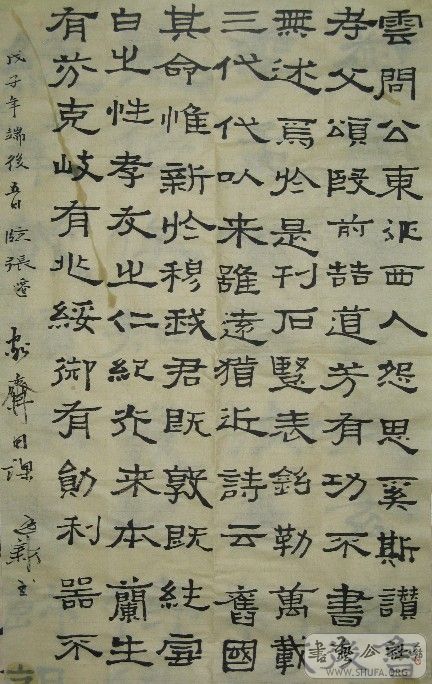 雲問公東征西人怨思奚斯讚
考父頌殷前喆道芳有功不書
無述焉於是刊石豎表銘勒萬載
三代代以來雖遠猶近詩云舊國
其命惟新於穆我君既敦既純雪
白之性孝友之仁紀行來本蘭生
有芬克岐有兆綏御有勛利器不
戊子年端後五日臨張遷 齋日課
書藝公社
WWW.SHUFA.ORG